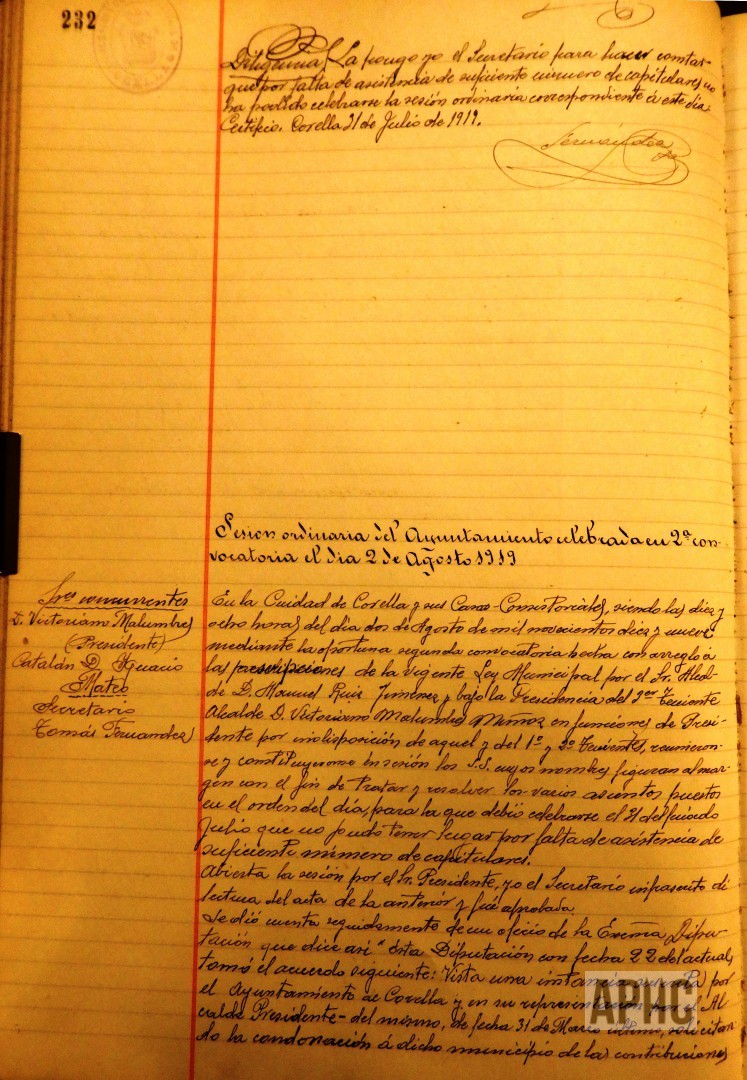 232
Diligencia / La pongo yo el Secretario para hacer constar
que por falta de asistencia de suficiente número de capitulares no
ha podido celebrarse la sesión ordinaria correspondiente á este día.
Certifico. Corella 31 de Julio de 1919.
Fernández
Sesion ordinaria del Ayuntamiento celebrada en 2ª con-
vocatoria el dia 2 de Agosto 1919
Sres concurrentes
D. Victoriano Malumbres
(Presidente)
Catalán D. Ignacio
Mateo
Secretario
Tomás Fernandez
En la Ciudad de Corella y sus Casas-Consistoriales, siendo las diez y
ocho horas del dia dos de Agosto de mil novecientos diez y nueve
mediante la oportuna segunda convocatoria hecha con arreglo á
las prescripciones de la vigente Ley Municipal por el Sr. Alcal-
de D. Manuel Ruiz Jimenez y bajo la Presidencia del 3er Teniente
Alcalde D. Victoriano Malumbres Muñoz en funciones de Presi-
dente por indisposición de aquel y del 1º y 2º Tenientes, reunieron-
se y constituyeronse en sesión los S.S. cuyos nombres figuran al mar-
gen con el fin de tratar y resolver los varios asuntos puestos
en el orden del día, para la que debió celebrarse el 31 del finido
Julio que no pudo tener lugar por falta de asistencia de
suficiente número de capitulares.
Abierta la sesión por el Sr. Presidente, yo el Secretario infrascrito di
lectura del acta de la anterior y fué aprobada.
Se dió cuenta seguidamente de un oficio de la Excma Dipu-
tación que dice así "Esta Diputación con fecha 22 del actual,
tomó el acuerdo siguiente: Vista una instancia suscrita por
el Ayuntamiento de Corella y en su representación por el Al-
calde Presidente del mismo, de fecha 31 de Marzo último, solicitan-
do la condonación á dicho municipio de las contribuciones
APHC